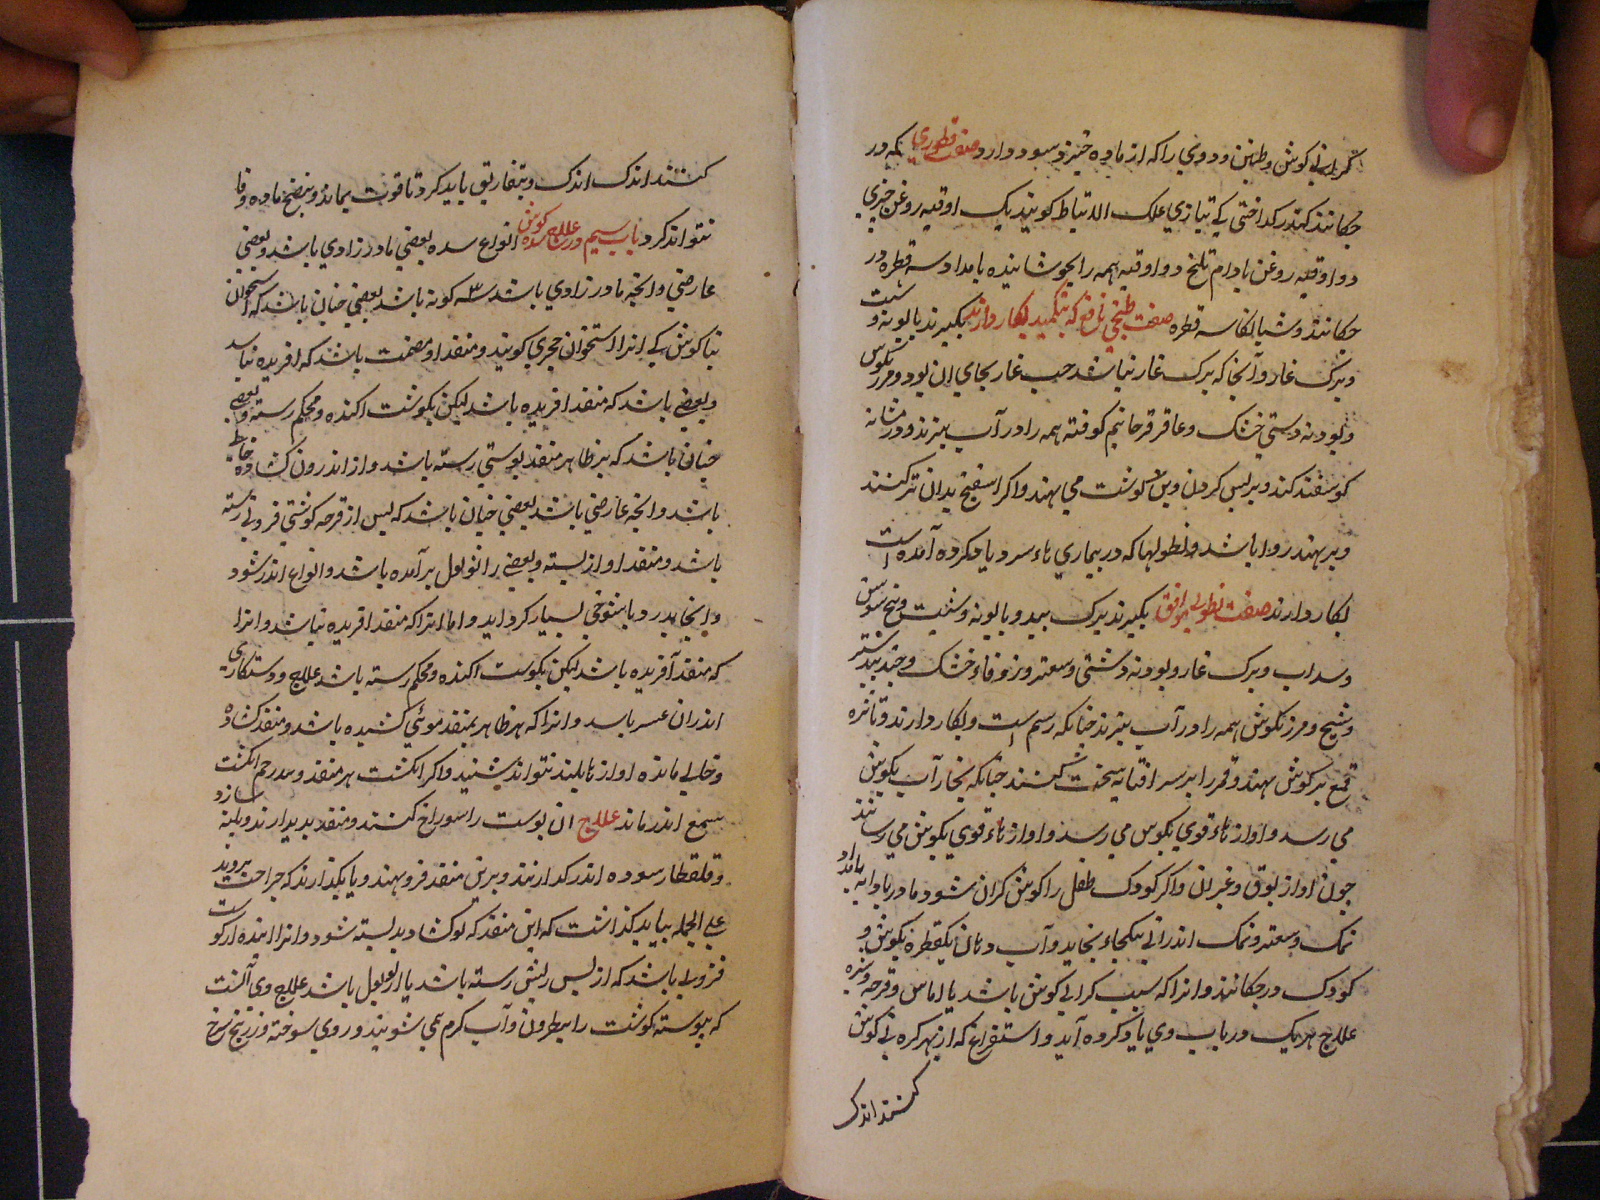 گرانی کوش و طنین و دوی را که از ماده خیزد سود دارد صفت قطوری که در
چکانند کندر کداختی که بتازی علک الانباط کویند یک اوقیه روغن خیری
دو اوقیه روغن بادام تلخ دو اوقیه همه را بجوشانند بامداد سه قطره در
چکانند و شبانکاه سه قطره صفت طبخی نافع که بتکمید بکار دارند بکیرند بابونه و شبت
و برک غار و آنجا که برک غار نباشد حب غار بجای ان بود و مرزنکوس
و بودنه دستی خشک و عاقرقرحا نیم کوفته همه را در آب بپزند و در مثانه
کوسفند کنند و بر پس کردن و بن کوشت می نهند و اکر اسفنج بدان تر کنند
و بر نهند روا باشد و نطولها که در بیماری هاء سرد یاد کرده آمده است
بکار دارند صفت نطولی موافق بکیرند برک بید و بابونه و شبت و بیخ سوسن
و سداب و برک غار و بودنه دشتی و سعتر و زوفاء خشک و جندبیدستر
و شیح و مرزنکوش همه را در آب بپزند چنانکه رسم است و بکار دارند و نایزه
قمع بر کوش نهند و قمع را بر سر افتابه سخت کنند چنانکه بخار آب بکوش
می رسد و اواز هاء قوی بکوس می رسد و اواز هاء قوی بکوش می رسانند
جون اواز بوق و غیر ان و اکر کودک طفل را کوش کران شود مادر یا دایه بامداد
نمک و سعتر و نمک اندرانی بیکجا بخاید و آب دهان یک قطره بکوش
کودک در چکانند و انرا که سبب کرانی کوش باشد یا اماس و قرحه و سده
علاج هر یک در باب وی یاد کرده آید و استفراغ که از بهر کرانی کوش
کنند اندک
کنند اندک اندک و بتفاریق باید کرد تا قوت بماند و بنضج ماده وفا
نتواند کرد باب سیم در علاج سده کوش انواع سده بعضی مادرزادی باشد و بعضی
عارضی و انچه مادرزادی باشد سه کونه باشد بعضی چنان باشد که استخوان
بناکوش که انرا استخوان حجری کویند و منفذ او مصمت باشد که افریده نباشد
و بعضی باشد که منفذ افریده باشد لیکن بکوشت اکنده و محکم رسته و بعضی
چنان باشد که بر ظاهر منفذ پوستی رسته باشد و از اندرون کشاده
باشد و انچه عارضی باشد بعضی چنان باشد که پس از قرحه کوشتی فزونی رسته
باشد و منفذ او از بسته و بعضی را ثولول برآمده باشد و انواع اندر شود
و اینجا بدرد یا شوخی بسیار کرد اید و اما انرا که منفذ افریده نباشد و انرا
که منفذ آفریده باشد لیکن بکوست اکنده و محکم رسته باشد علاج و دستکاری
اندران عسر باسد و انرا که بر ظاهر منفذ کشیده باشد و منفذ کشاده
و خالی مانده اواز هابلند بتواند شنید و اکر انکشت بر منفذ
سمع اندر ماند علاج ان پوست را سوراخ کنند و منفذ پدید ارند و پلیته سازد
و قلقطار سوده اندر کدارند و برین منفذ فرو نهند و یا بکذارند که جراحت بروید
علی الجمله نباید کذاشت که این منفذ که بو کشاد بد بسته شود و انرا
فزونی باشد که از پس ریش رسته باشد یا ثولول باشد علاج وی آنست
که پیوسته کوشت را بنطرون و آب کرم می شویند و روی سوخته و زرنیخ سرخ